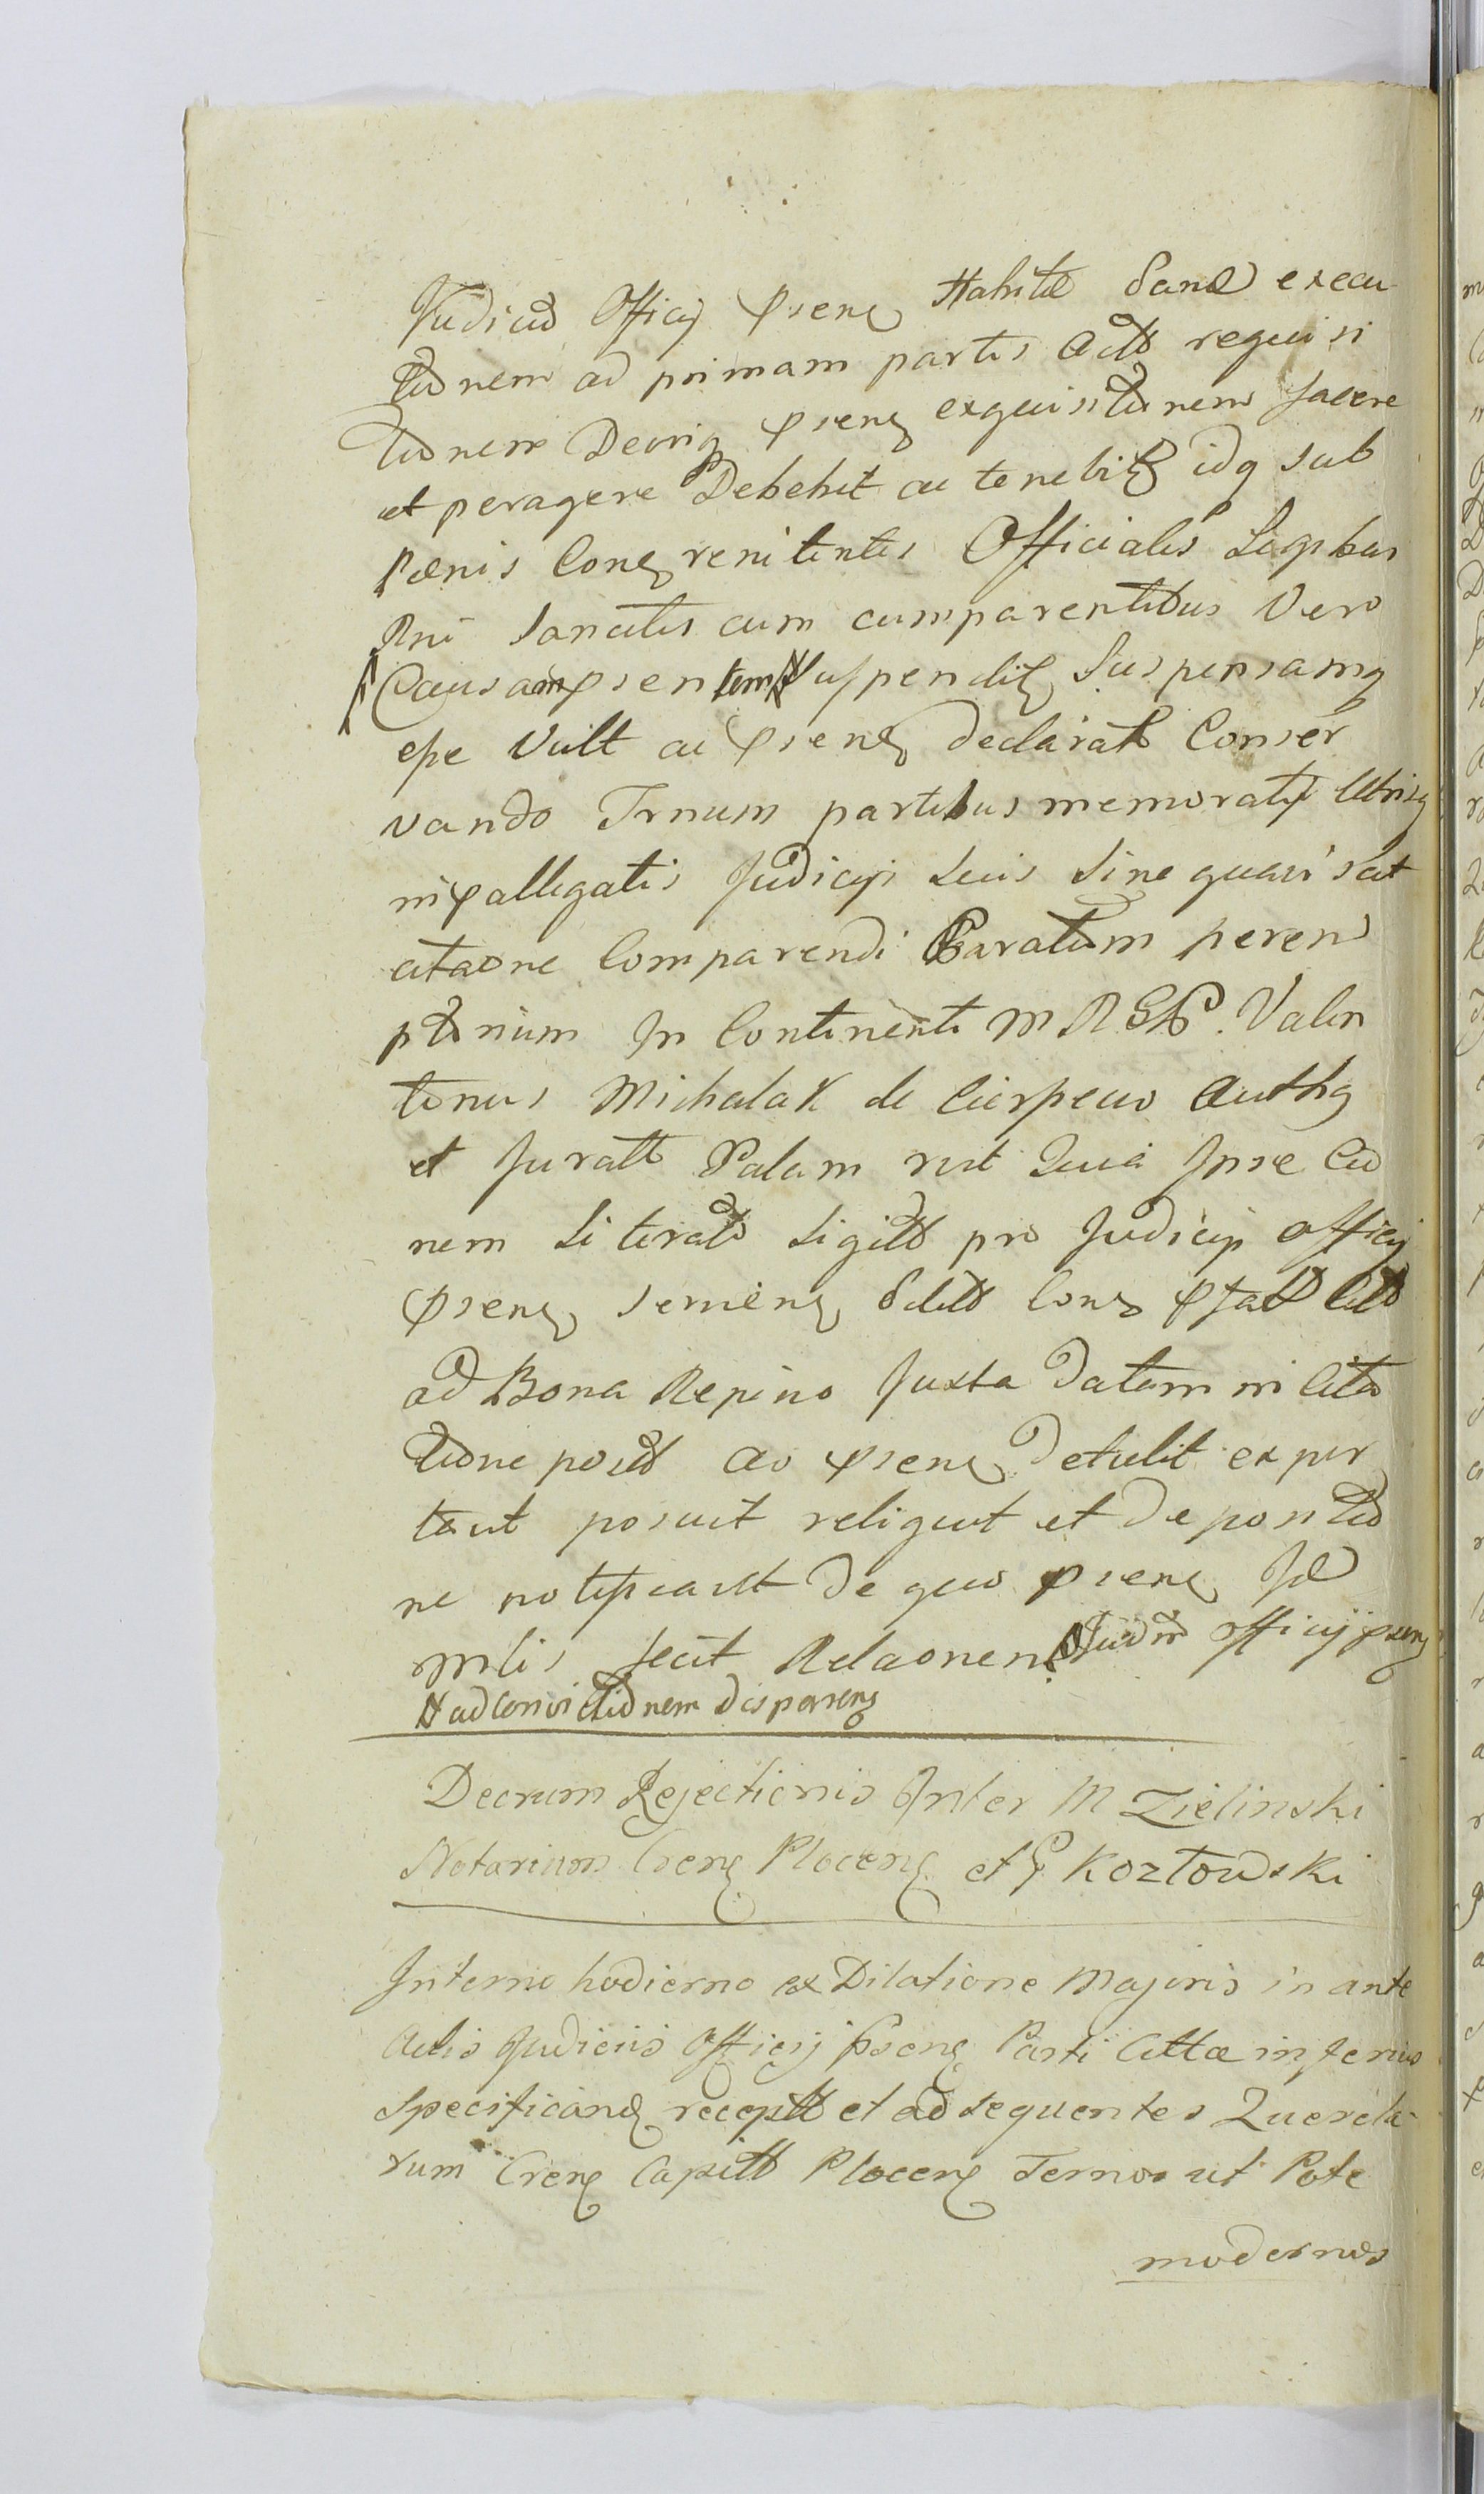 Judicio Officij psenq Habitæ Sanæ execu
tionem ad primam partis Actt requisi
tionem Decriq psenq exquisitionem facere
et peragere Debebit ac tenebitq idq sub
Pænis Conq renitentes Officiales Legibus
Rni Sancitis cum cumparentibus Vero
Causam psentem # Suspenditq Suspensamq
esse Vult ac psenq declaratt Conser
vando Trnum partibus memoratis Utrisq
in pallegatis Judicijs suis Sine quavis at
citaone Comparendi Paratum perem
ptorium In Continenti M R G P. Valen
tinus Michalak de Cierpewo Authq
et Juratt Palam rist Quia Ipse Cio
nem Literatt Sigitt pro Judicijs officij
psenq serviens Editt Conq pfatt Citt
ad Bona Repino Juxta Datam in Cita
tione positt ac psenq Detulit exper
tavit posuit reliquit et de positio
ne notificavit de quo psenq Id
mlis fecit Relaonem Judir officij psenq
# ad Convictionem disparenq
Decrum Rejectionis Inter M Zielinski
Notarium Crenq Plocenq et G Kozłowski
Interno hodierno ex Dilatione Majoris in ante
Actis Judiciis Officij psenq Parti Cittæ inferius
Specificandq receptt et ad sequentes Querela
rum Crenq Capitt Plocenq Ternos ut Pote
modernos